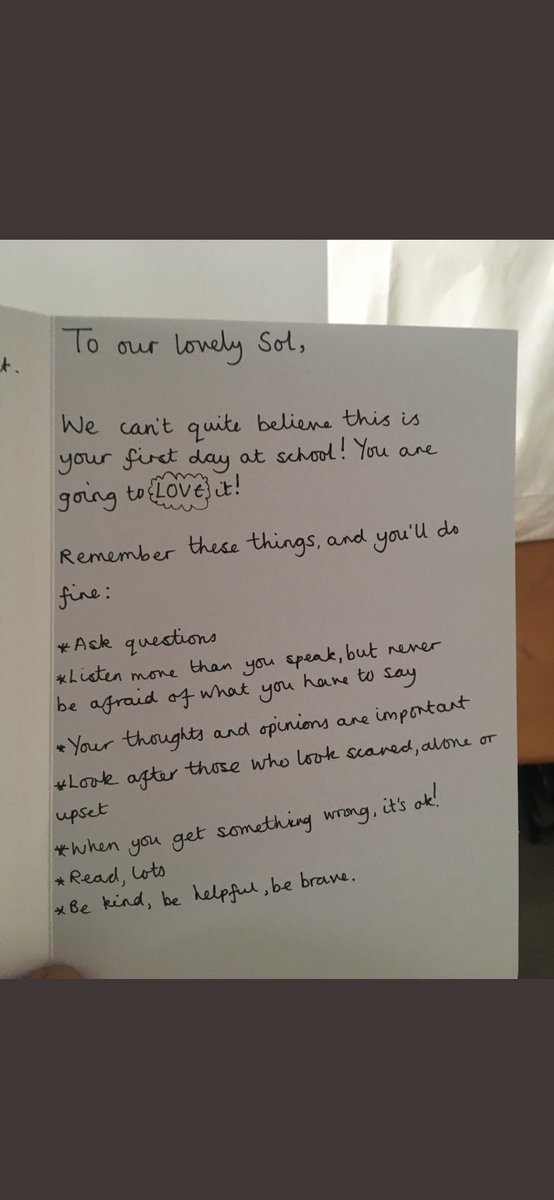 t.
To our lovely Sol,
We can't quite believe this is
your first day at school! You are
going to LOVE it!
Remember these things, and you'll do
fine:
*Ask questions
*Listen more than you speak, but never
be afraid of what you have to say
*Your thoughts and opinions are important
*Look after those who look scared, alone or
upset
*When you get something wrong, it's ok!
*Read, lots
*Be kind, be helpful, be brave.